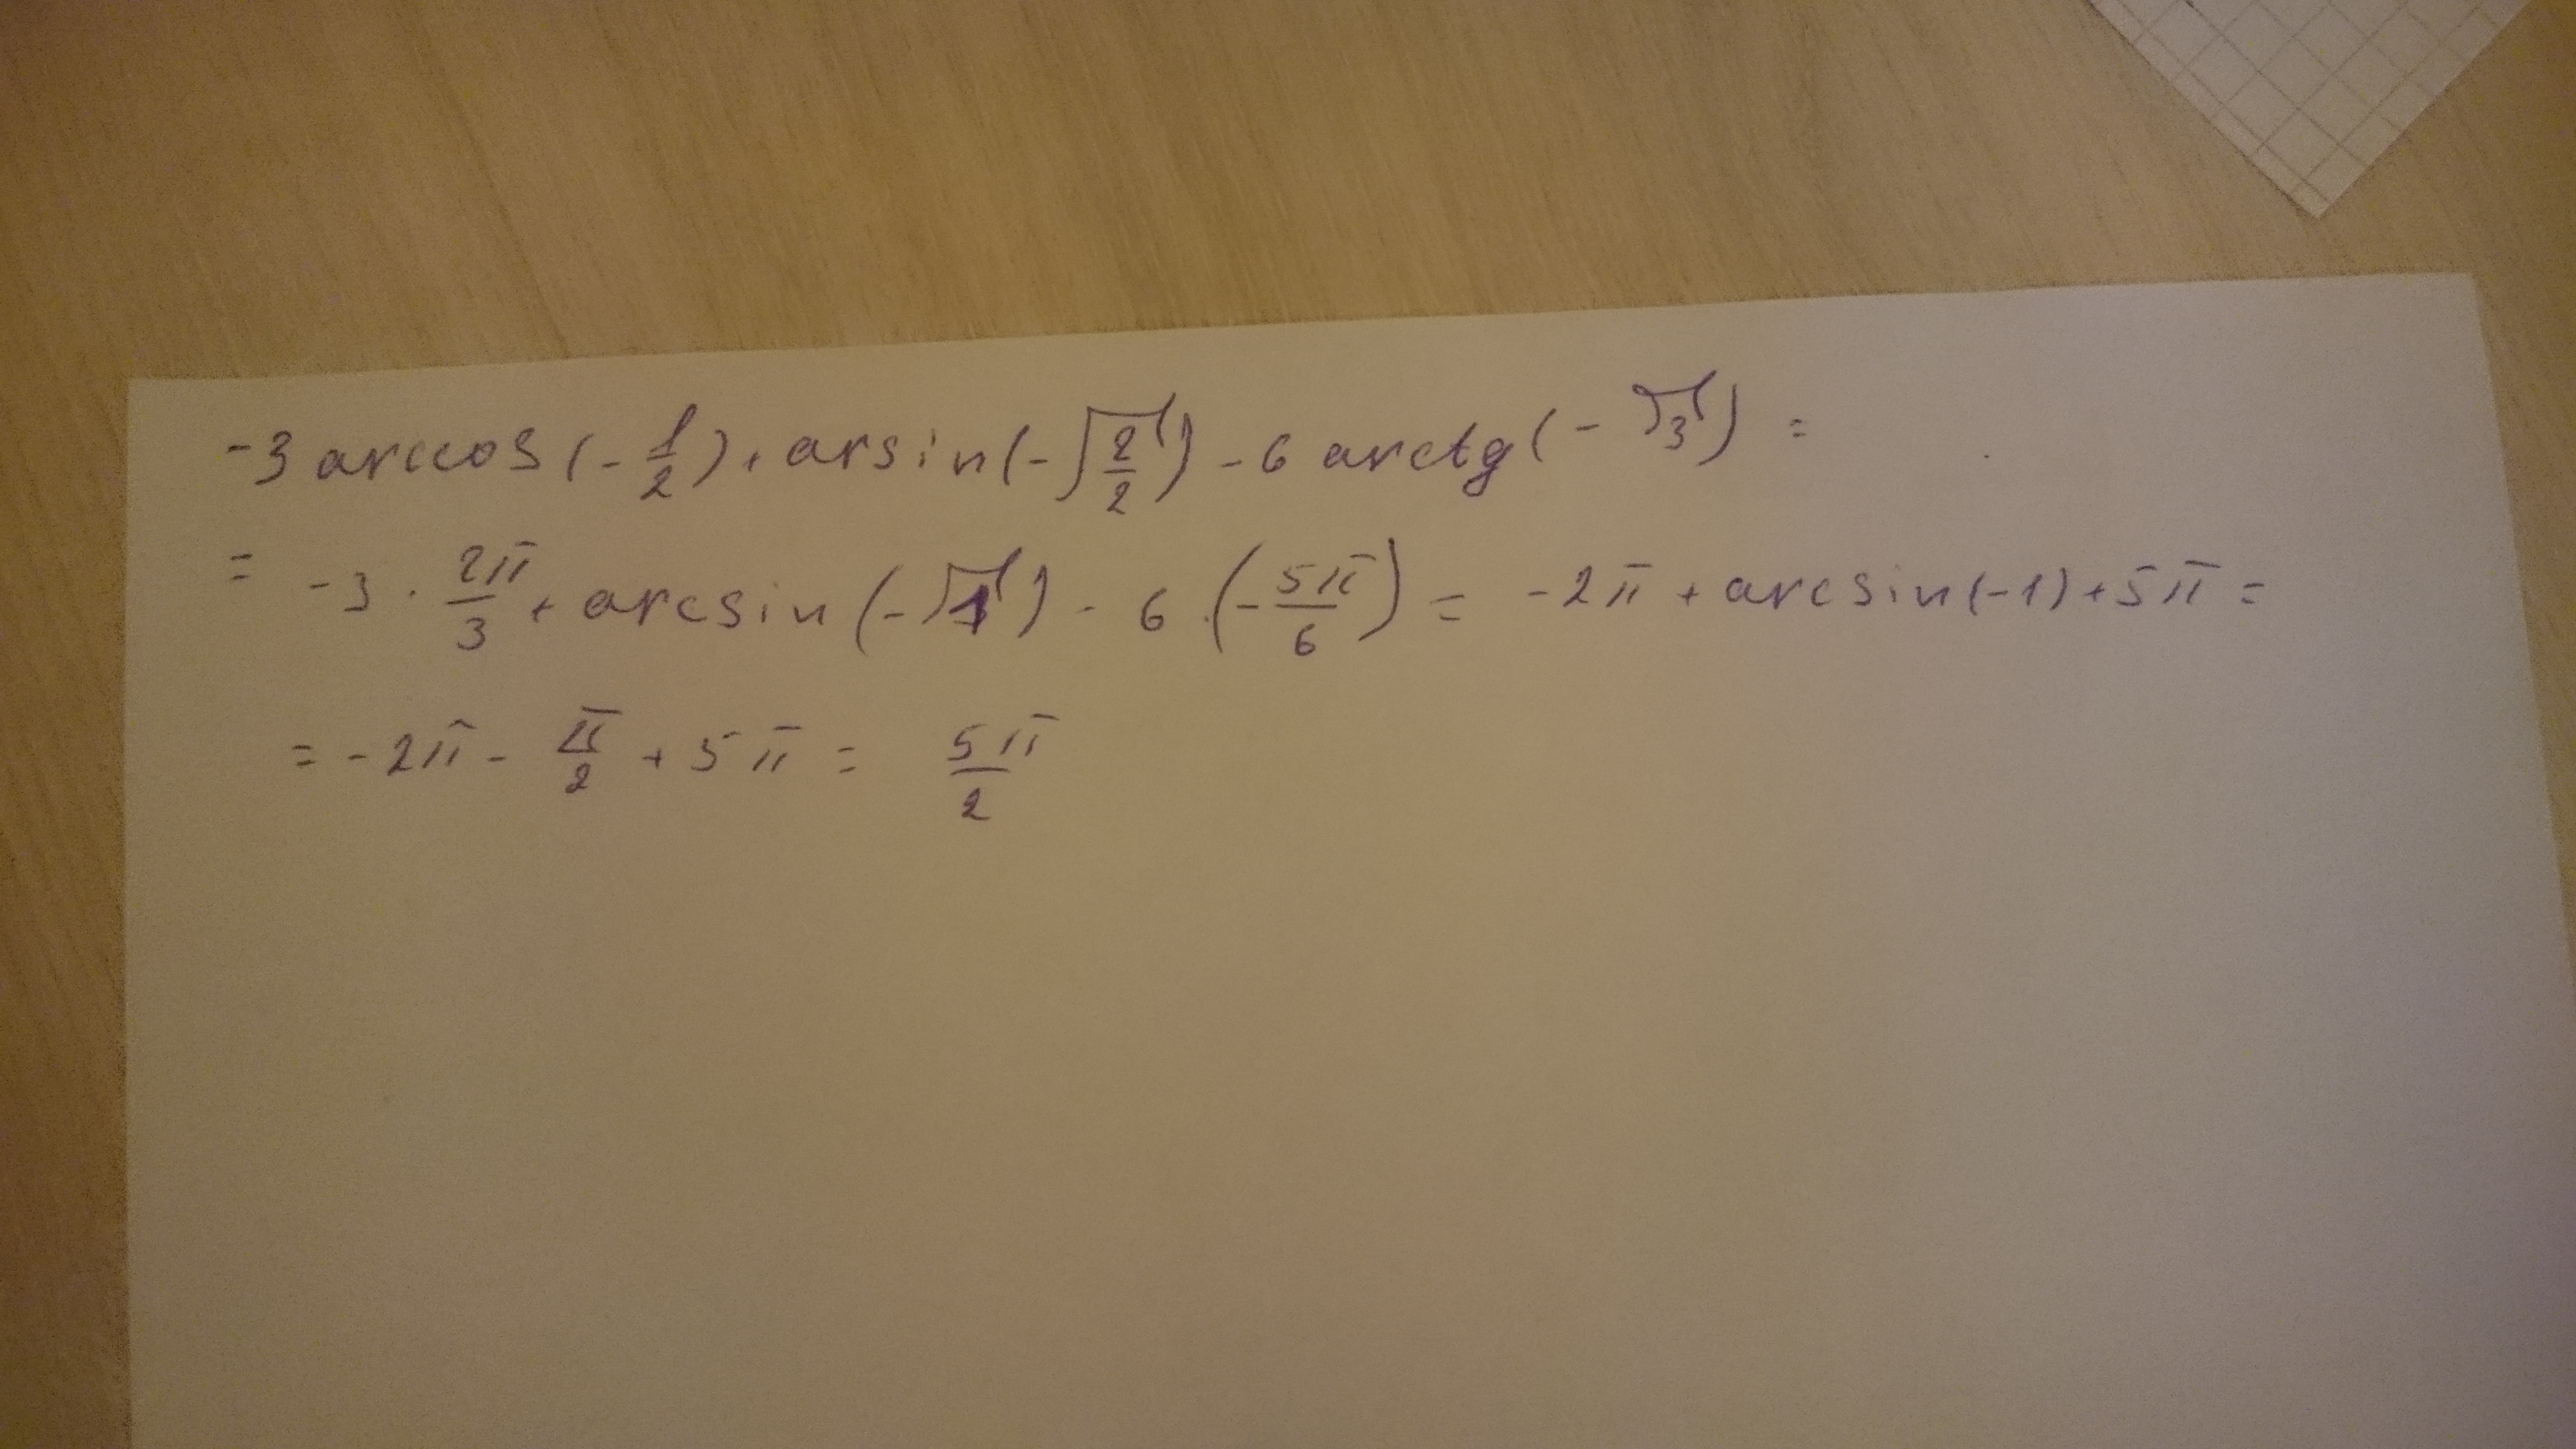 -3 arccos(-1/2) + arsin(-√(2/2)) - 6 arctg(-√3) =
= -3 · 2π/3 + arcsin(-√1) - 6 · (-5π/6) = -2π + arcsin(-1) + 5π =
= -2π - π/2 + 5π = 5π/2